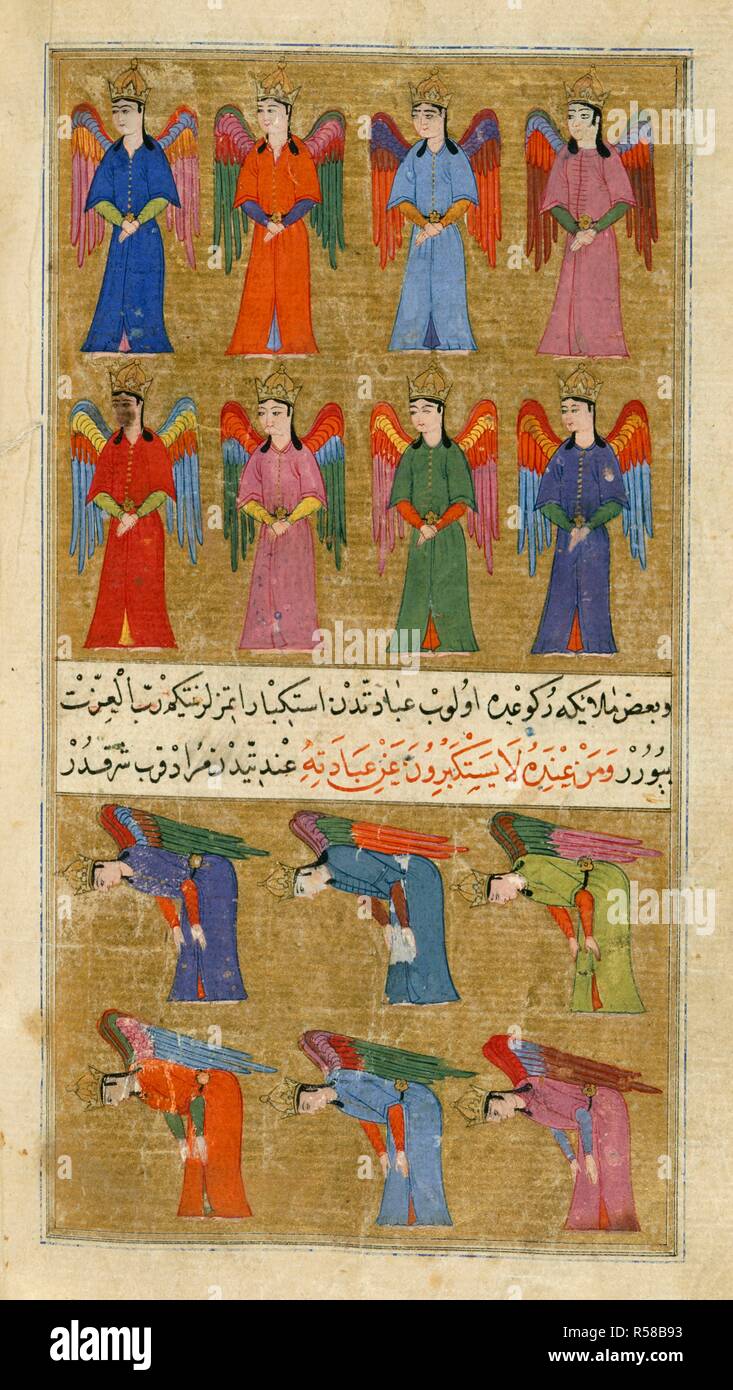 وبعض ملائكه ركوعده اولوب عبادتدن استكبار اتمزلر نتكم ربّ العزّت
بيورر وَمَنْ عِنْدَهُ لَا يَسْتَكْبِرُونَ عَنْ عِبَادَتِهِ عنديتدن مراد قرب شرفدر
alamy
Image ID: R58B93
www.alamy.com